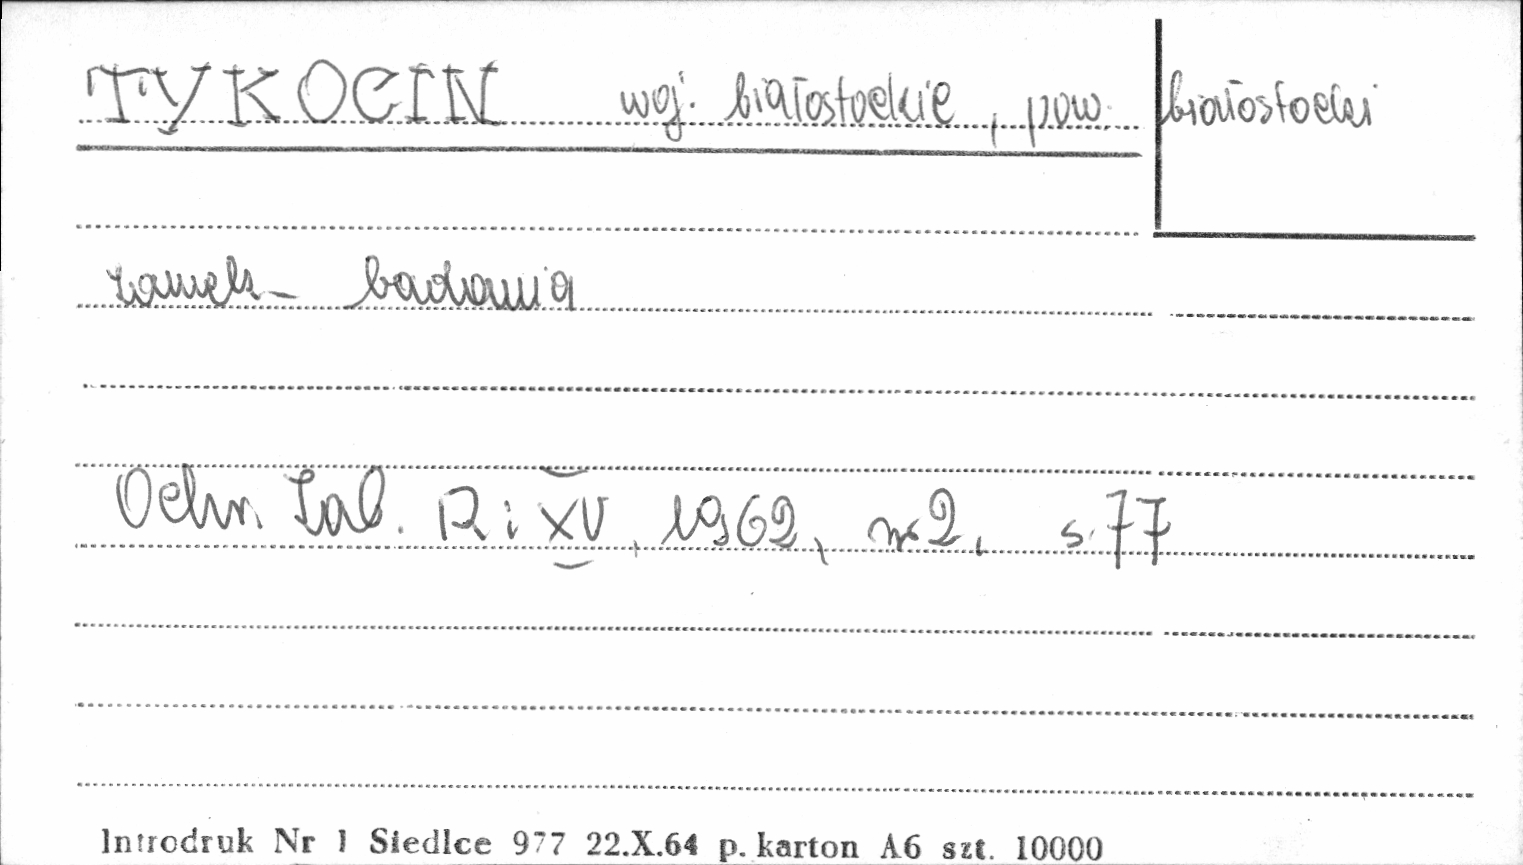 TYKOCIN woj. białostockie, pow. białostocki
zamek - badania
Ochr. Zab. R: XV, 1962, nr 2, s. 77
Introdruk Nr 1 Siedlce 977 22.X.64 p. karton A6 szt. 10000